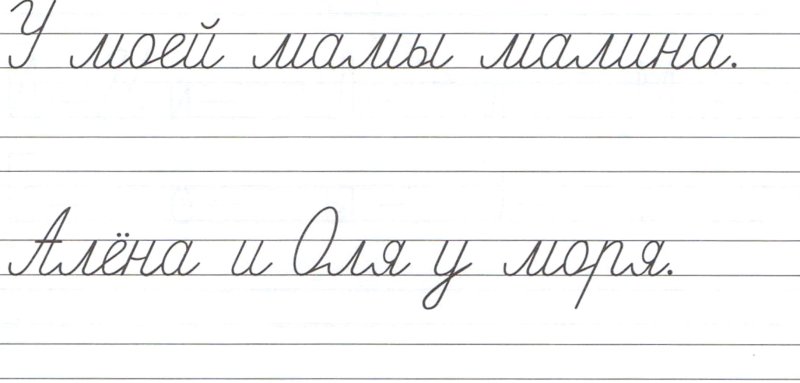 У моей мамы малина.
Алёна и Оля у моря.